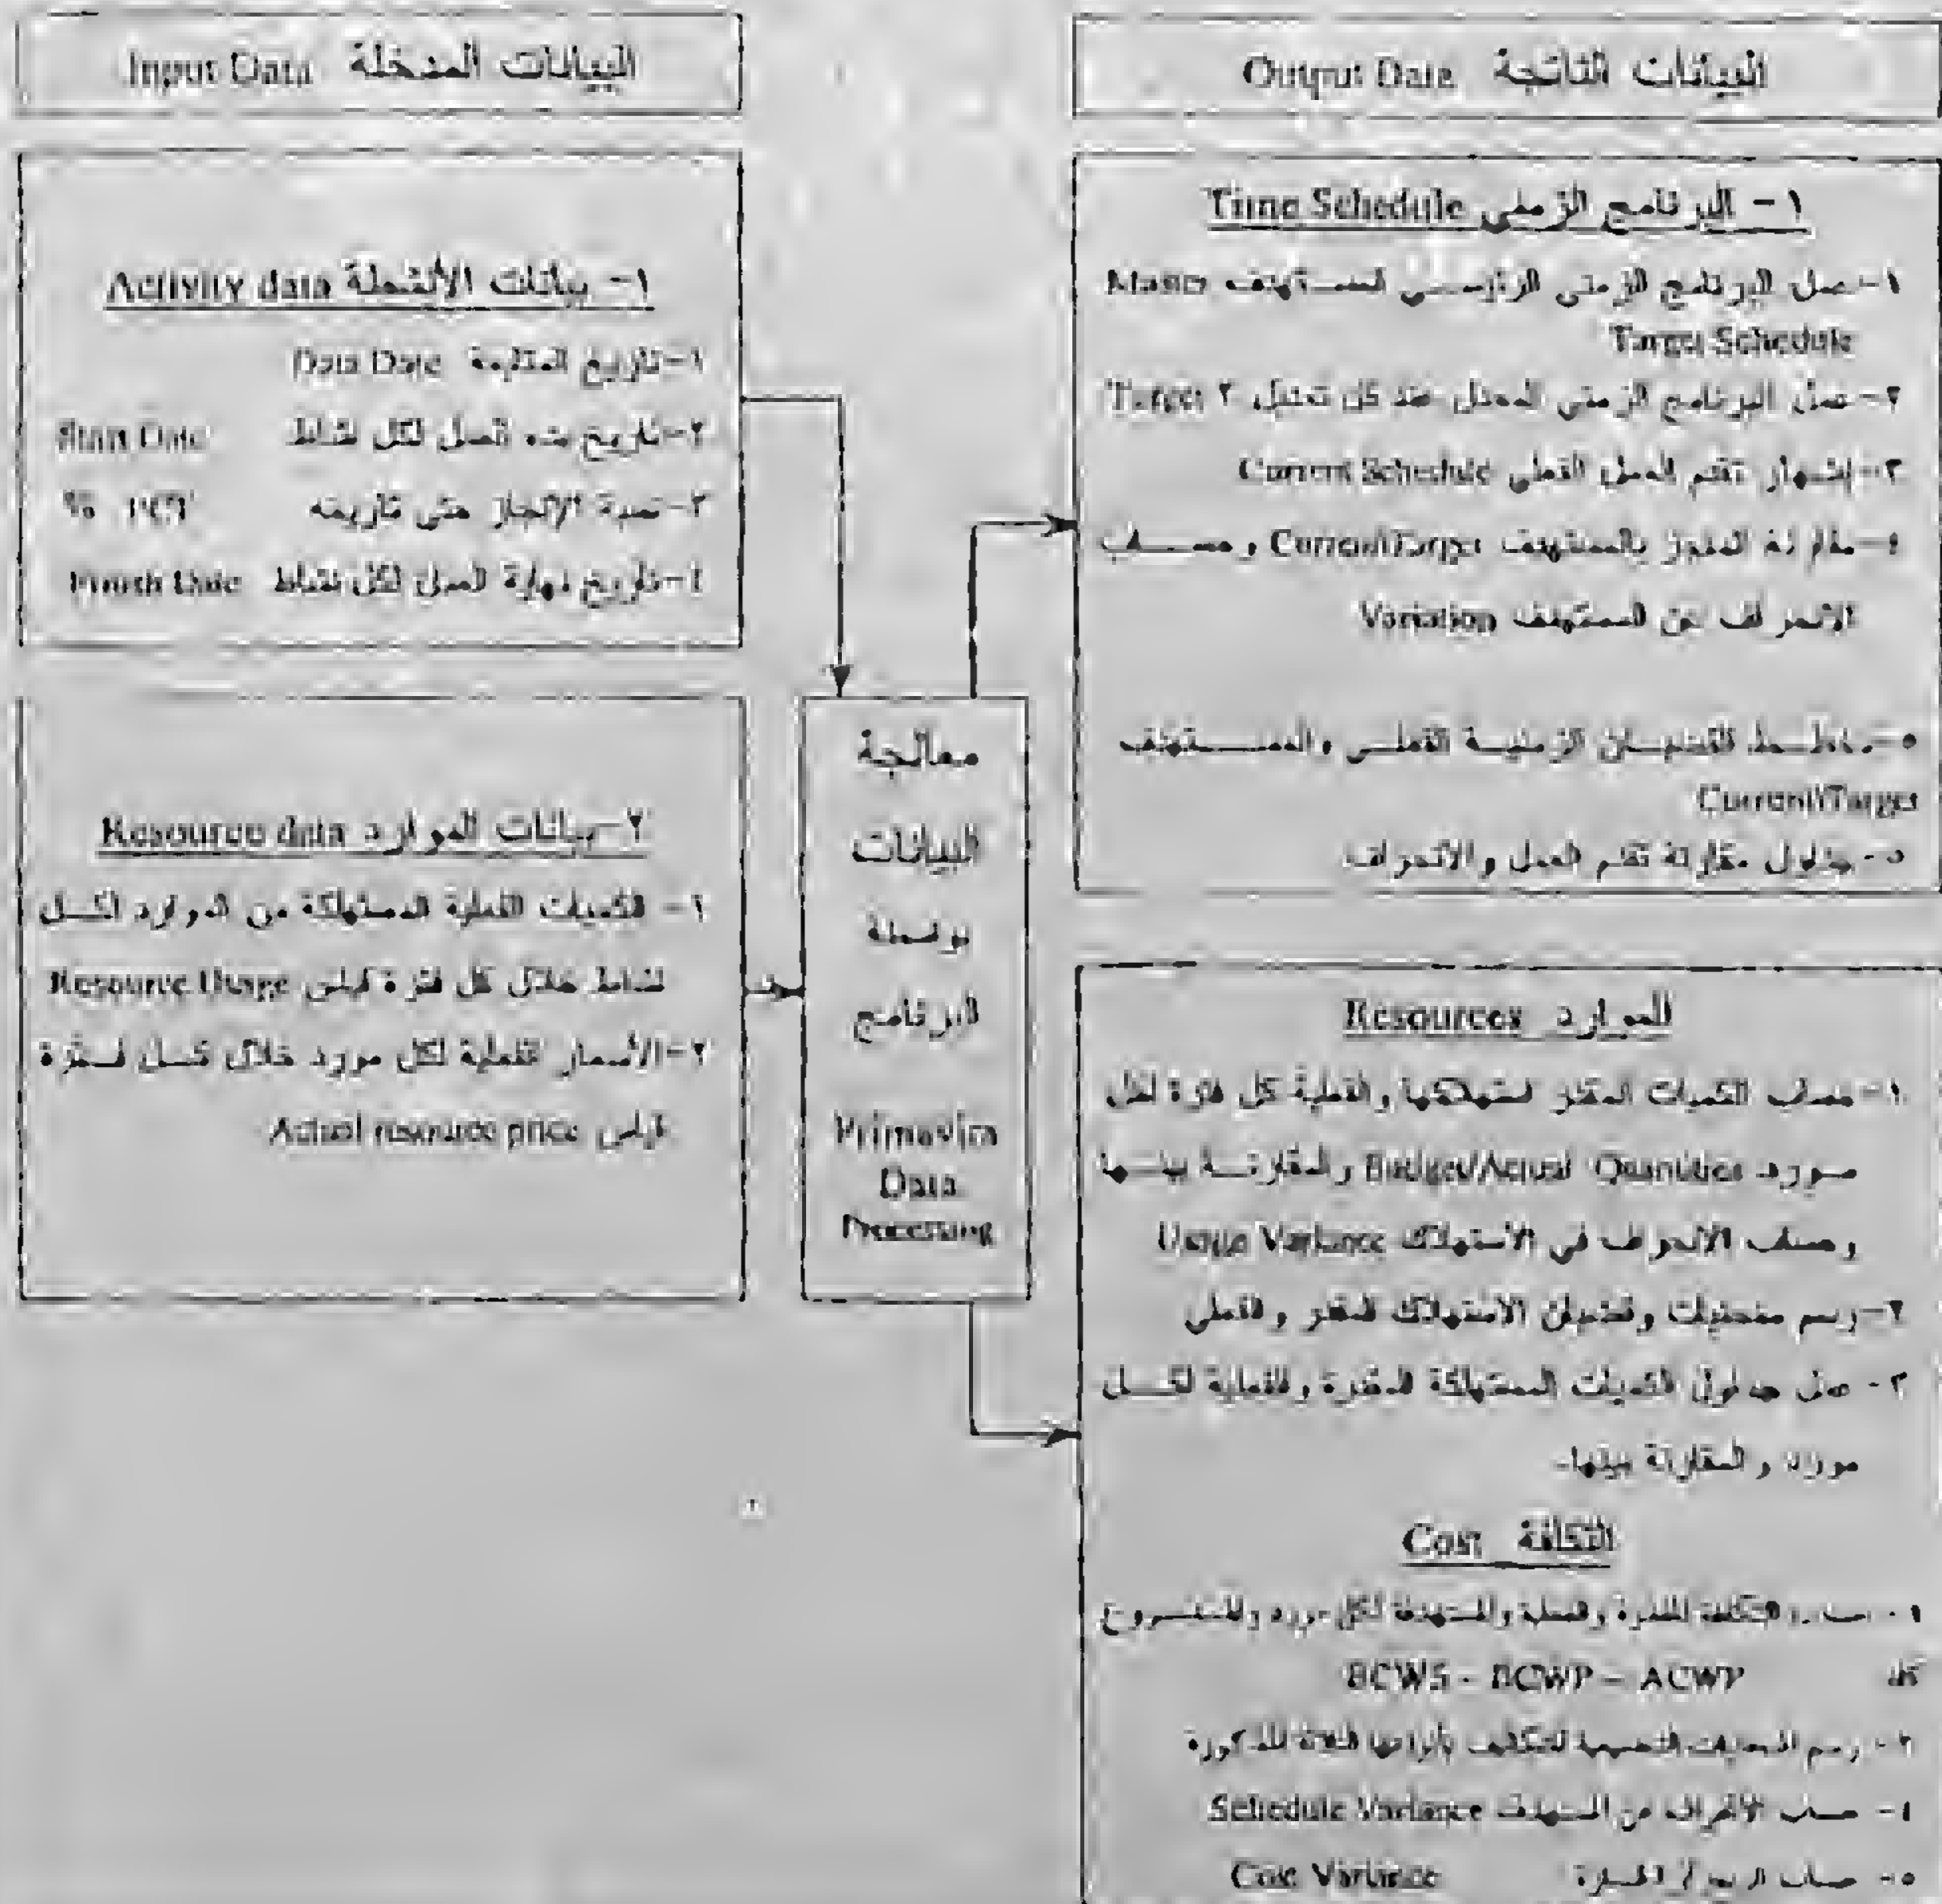 البيانات المدخلة Input Data
١- بيانات الأنشطة Activity data
١-تاريخ المتابعة Data Date
٢-تاريخ بدء العمل لكل نشاط Start Date
٣-نسبة الإنجاز حتى تاريخه % PCT
٤-تاريخ نهاية العمل لكل نشاط Finish Date
٢-بيانات الموارد Resource data
١- الكميات الفعلية المستهلكة من الموارد لكل
نشاط خلال كل فترة قياس Resource Usage
٢-الأسعار الفعلية لكل مورد خلال كل فترة
قياس Actual resource price
معالجة
البيانات
بواسطة
البرنامج
Primavira
Data
Processing
البيانات الناتجة Output Date
١- البرنامج الزمني Time Schedule
١-عمل البرنامج الزمني الرئيسي المستهدف Master
Target Schedule
٢-عمل البرنامج الزمني المعدل عند كل تعديل Target ٢
٣-إظهار تقدم العمل الفعلي Current Schedule
٤-مقارنة المنجز بالمستهدف Current/Target وحساب
الانحراف عن المستهدف Variation
٥-مخطط القضبان الزمنية الفعلي والمستهدف
Current/Target
٥- جداول مقارنة تقدم العمل والانحراف.
الموارد Resources
١-حساب الكميات المقدر استهلاكها والفعلية كل فترة لكل
مورد Budget/Actual Quantities والمقارنة بينها
وحساب الانحراف في الاستهلاك Usage Variance
٢-رسم منحنيات وقضبان الاستهلاك المقدر والفعلي
٣- عمل جداول الكميات المستهلكة المقدرة والفعلية لكل
مورد والمقارنة بينها.
التكلفة Cost
١- التكلفة المقدرة والفعلية والمستهدفة لكل مورد والمشروع
كله BCWS - BCWP – ACWP
٢- رسم المنحنيات التجميعية للتكاليف بأنواعها الثلاثة المذكورة
٤- حساب الانحراف عن المستهدف Schedule Variance
٥- حساب الربح أو الخسارة Cost Variance